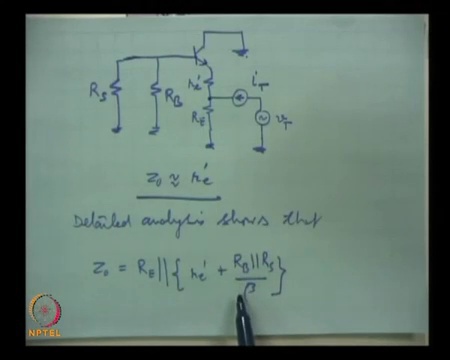 R_S
R_B
r_e'
R_E
i_T
v_T
z_o ≈ r_e'
Detailed analysis shows that
z_o = R_E || { r_e' + (R_B || R_S) / β }
NPTEL